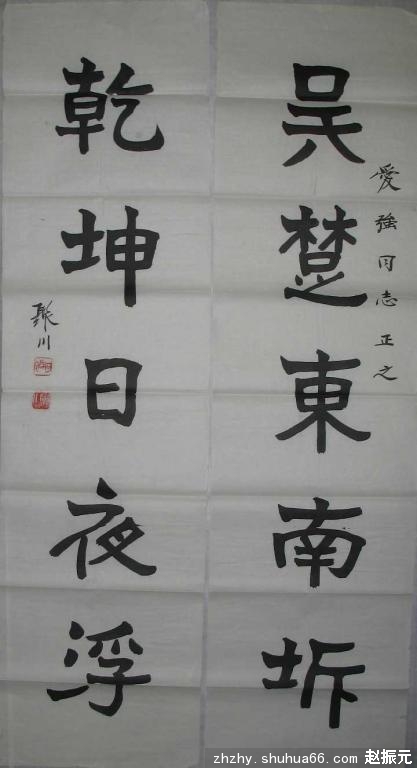 吴楚東南坼
愛強同志正之
乾坤日夜浮
聚川
zhzhy.shuhua66.com 赵振元